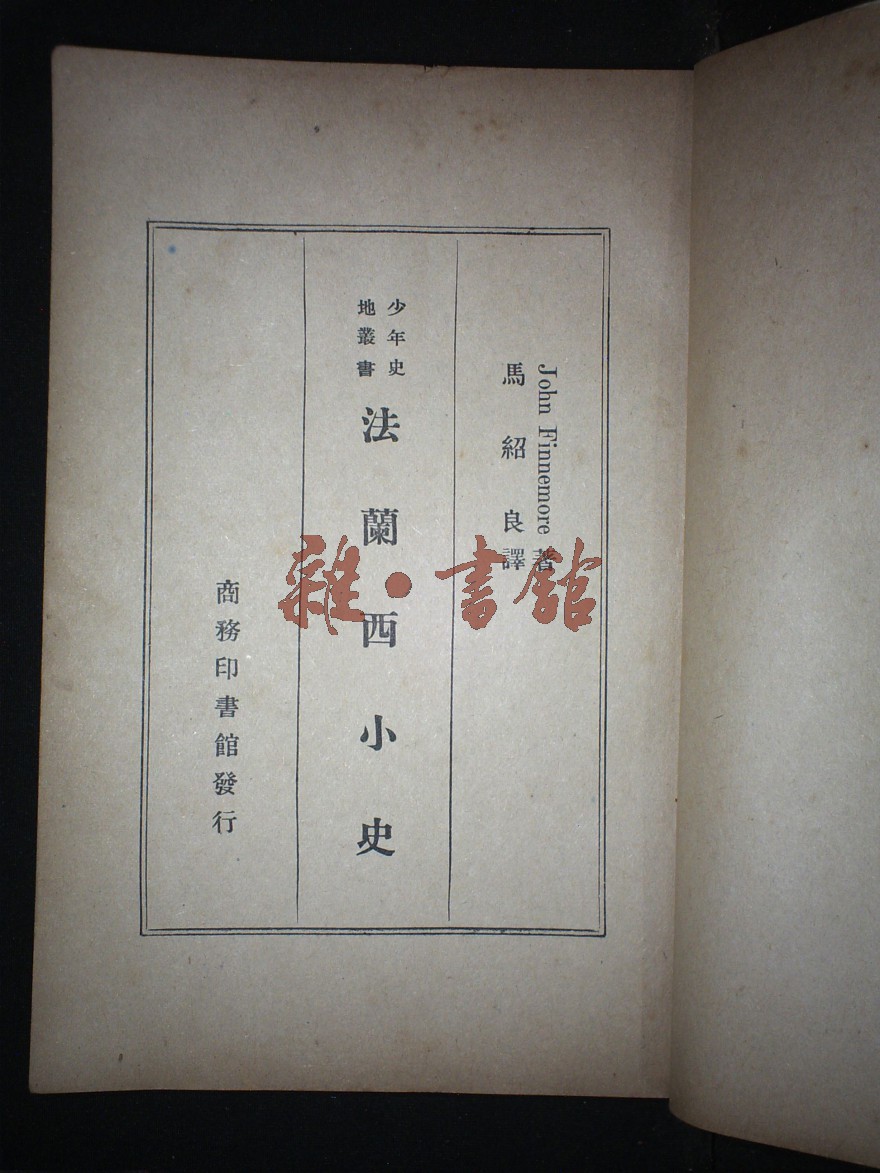 John Finnemore 著
馬紹良譯
少年史
地叢書
法蘭西小史
商務印書館發行
雜·書館